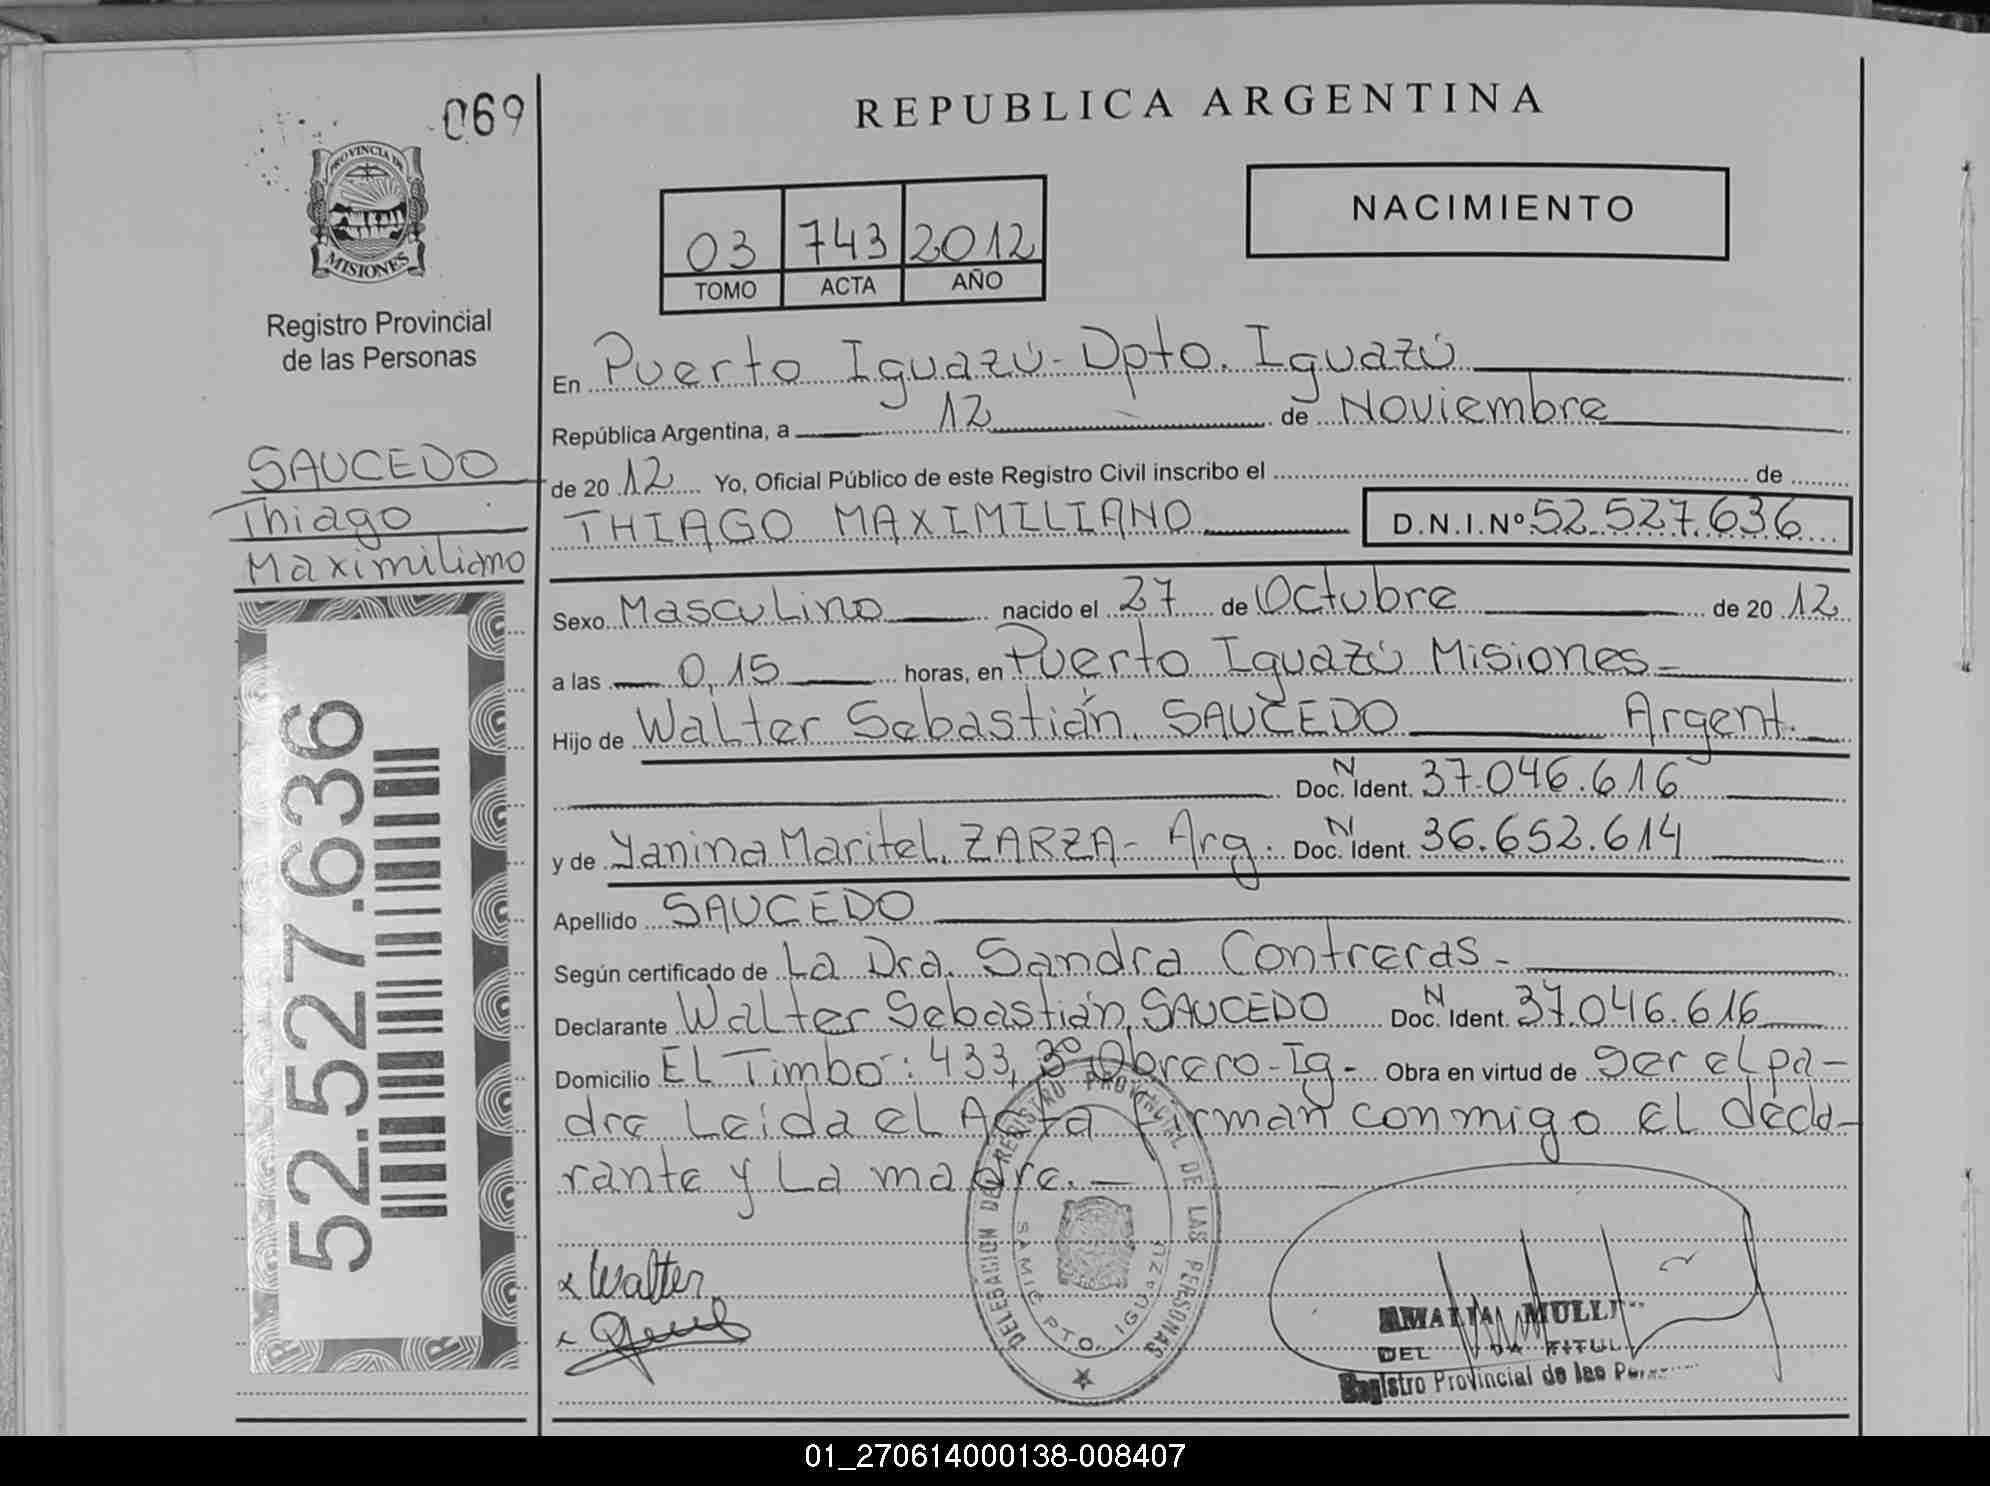 069
PROVINCIA DE
MISIONES
Registro Provincial
de las Personas
SAUCEDO
Thiago
Maximiliano
52.527.636
REPUBLICA ARGENTINA
NACIMIENTO
03 743 2012
TOMO ACTA AÑO
En Puerto Iguazú - Dpto. Iguazú
República Argentina, a 12 de Noviembre
de 20 12 Yo, Oficial Público de este Registro Civil inscribo el de
THIAGO MAXIMILIANO D.N.I.Nº 52.527.636
Sexo Masculino nacido el 27 de Octubre de 20 12
a las 0,15 horas, en Puerto Iguazú Misiones
Hijo de Walter Sebastián, SAUCEDO Argent.
Doc. N Ident. 37.046.616
y de Yanina Maritel, ZARZA - Arg. Doc. N Ident. 36.652.614
Apellido SAUCEDO
Según certificado de La Dra. Sandra Contreras -
Declarante Walter Sebastián, SAUCEDO Doc. N Ident. 37.046.616
Domicilio El Timbo: 433, 3º Obrero - Ig - Obra en virtud de ser el pa-
dre Leida el Acta Firman conmigo el decla-
rante y La madre. -
x Walter
DELEGACION DEL REGISTRO PROVINCIAL DE LAS PERSONAS
SAMIC PTO. IGUAZU
AMALIA MULL
DEL TITUL
Registro Provincial de las Per
01_270614000138-008407